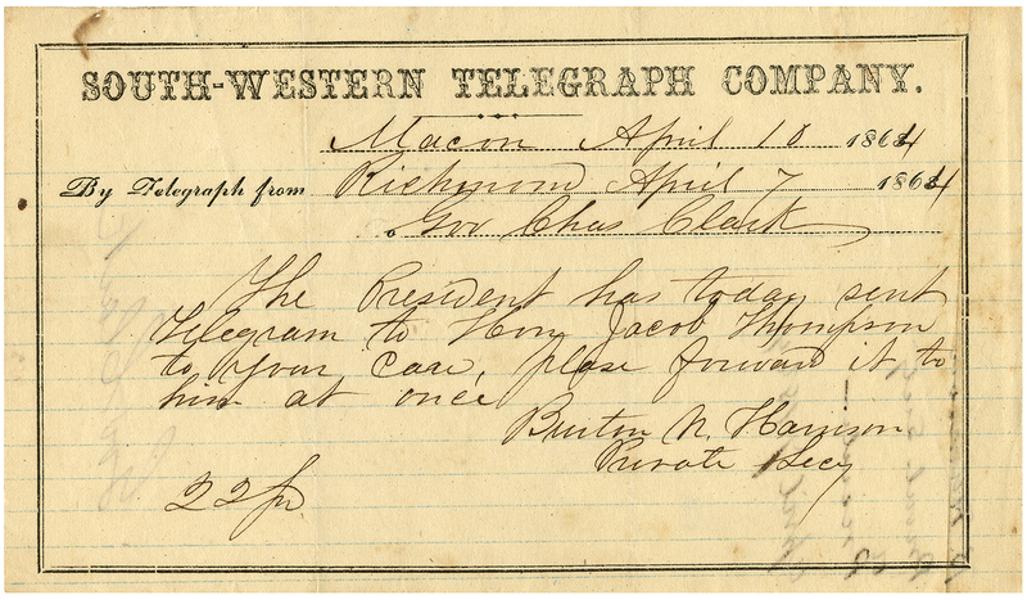 SOUTH-WESTERN TELEGRAPH COMPANY.
Macon April 10 1864
By Telegraph from Richmond April 7 1864
Gov Chas Clark
The President has today sent
telegram to Hon Jacob Thompson
to your care, please forward it to
him at once
Burton N. Harrison
Private Secy
22 pr